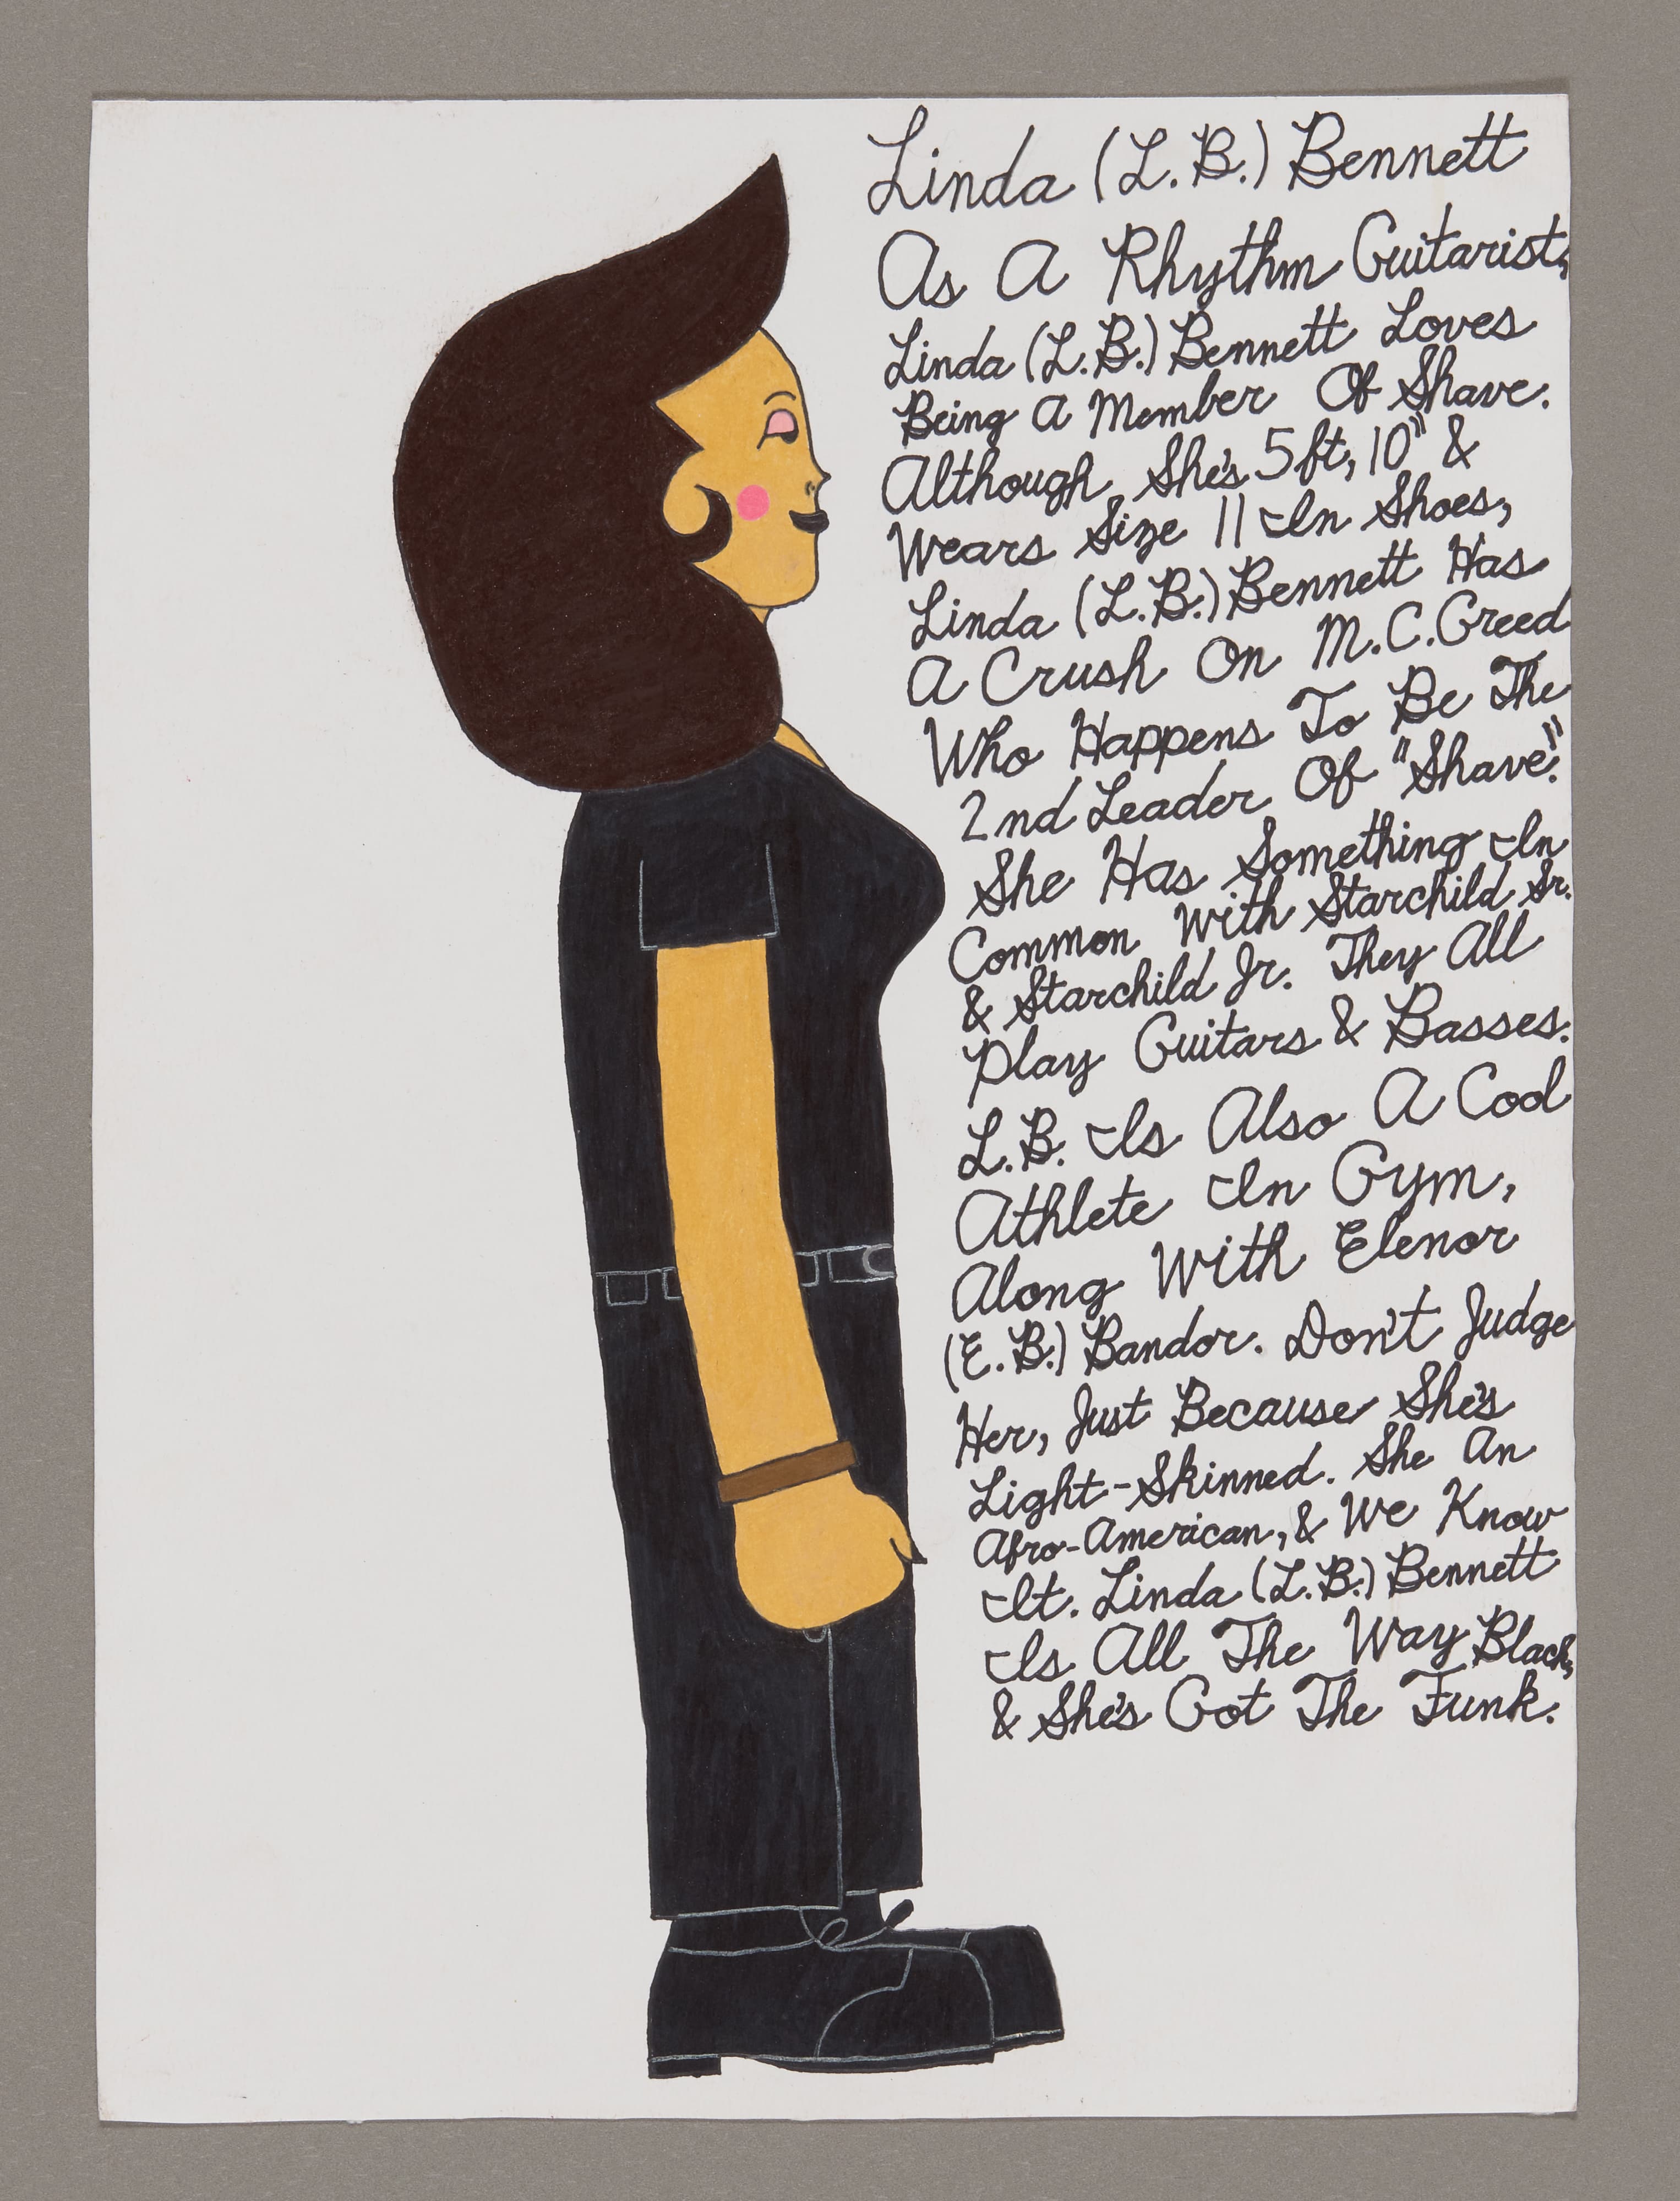 Linda (L.B.) Bennett
As A Rhythm Guitarist,
Linda (L.B.) Bennett Loves
Being A Member Of Shave.
Although She's 5ft, 10" &
Wears Size 11 In Shoes,
Linda (L.B.) Bennett Has
A Crush On M.C. Creed
Who Happens To Be The
2nd Leader Of "Shave".
She Has Something In
Common With Starchild Sr.
& Starchild Jr. They All
Play Guitars & Basses.
L.B. Is Also A Cool
Athlete In Gym,
Along With Elenor
(E.B.) Bandor. Don't Judge
Her, Just Because She's
Light-Skinned. She An
Afro-American, & We Know
It. Linda (L.B.) Bennett
Is All The Way Black,
& She's Got The Funk.